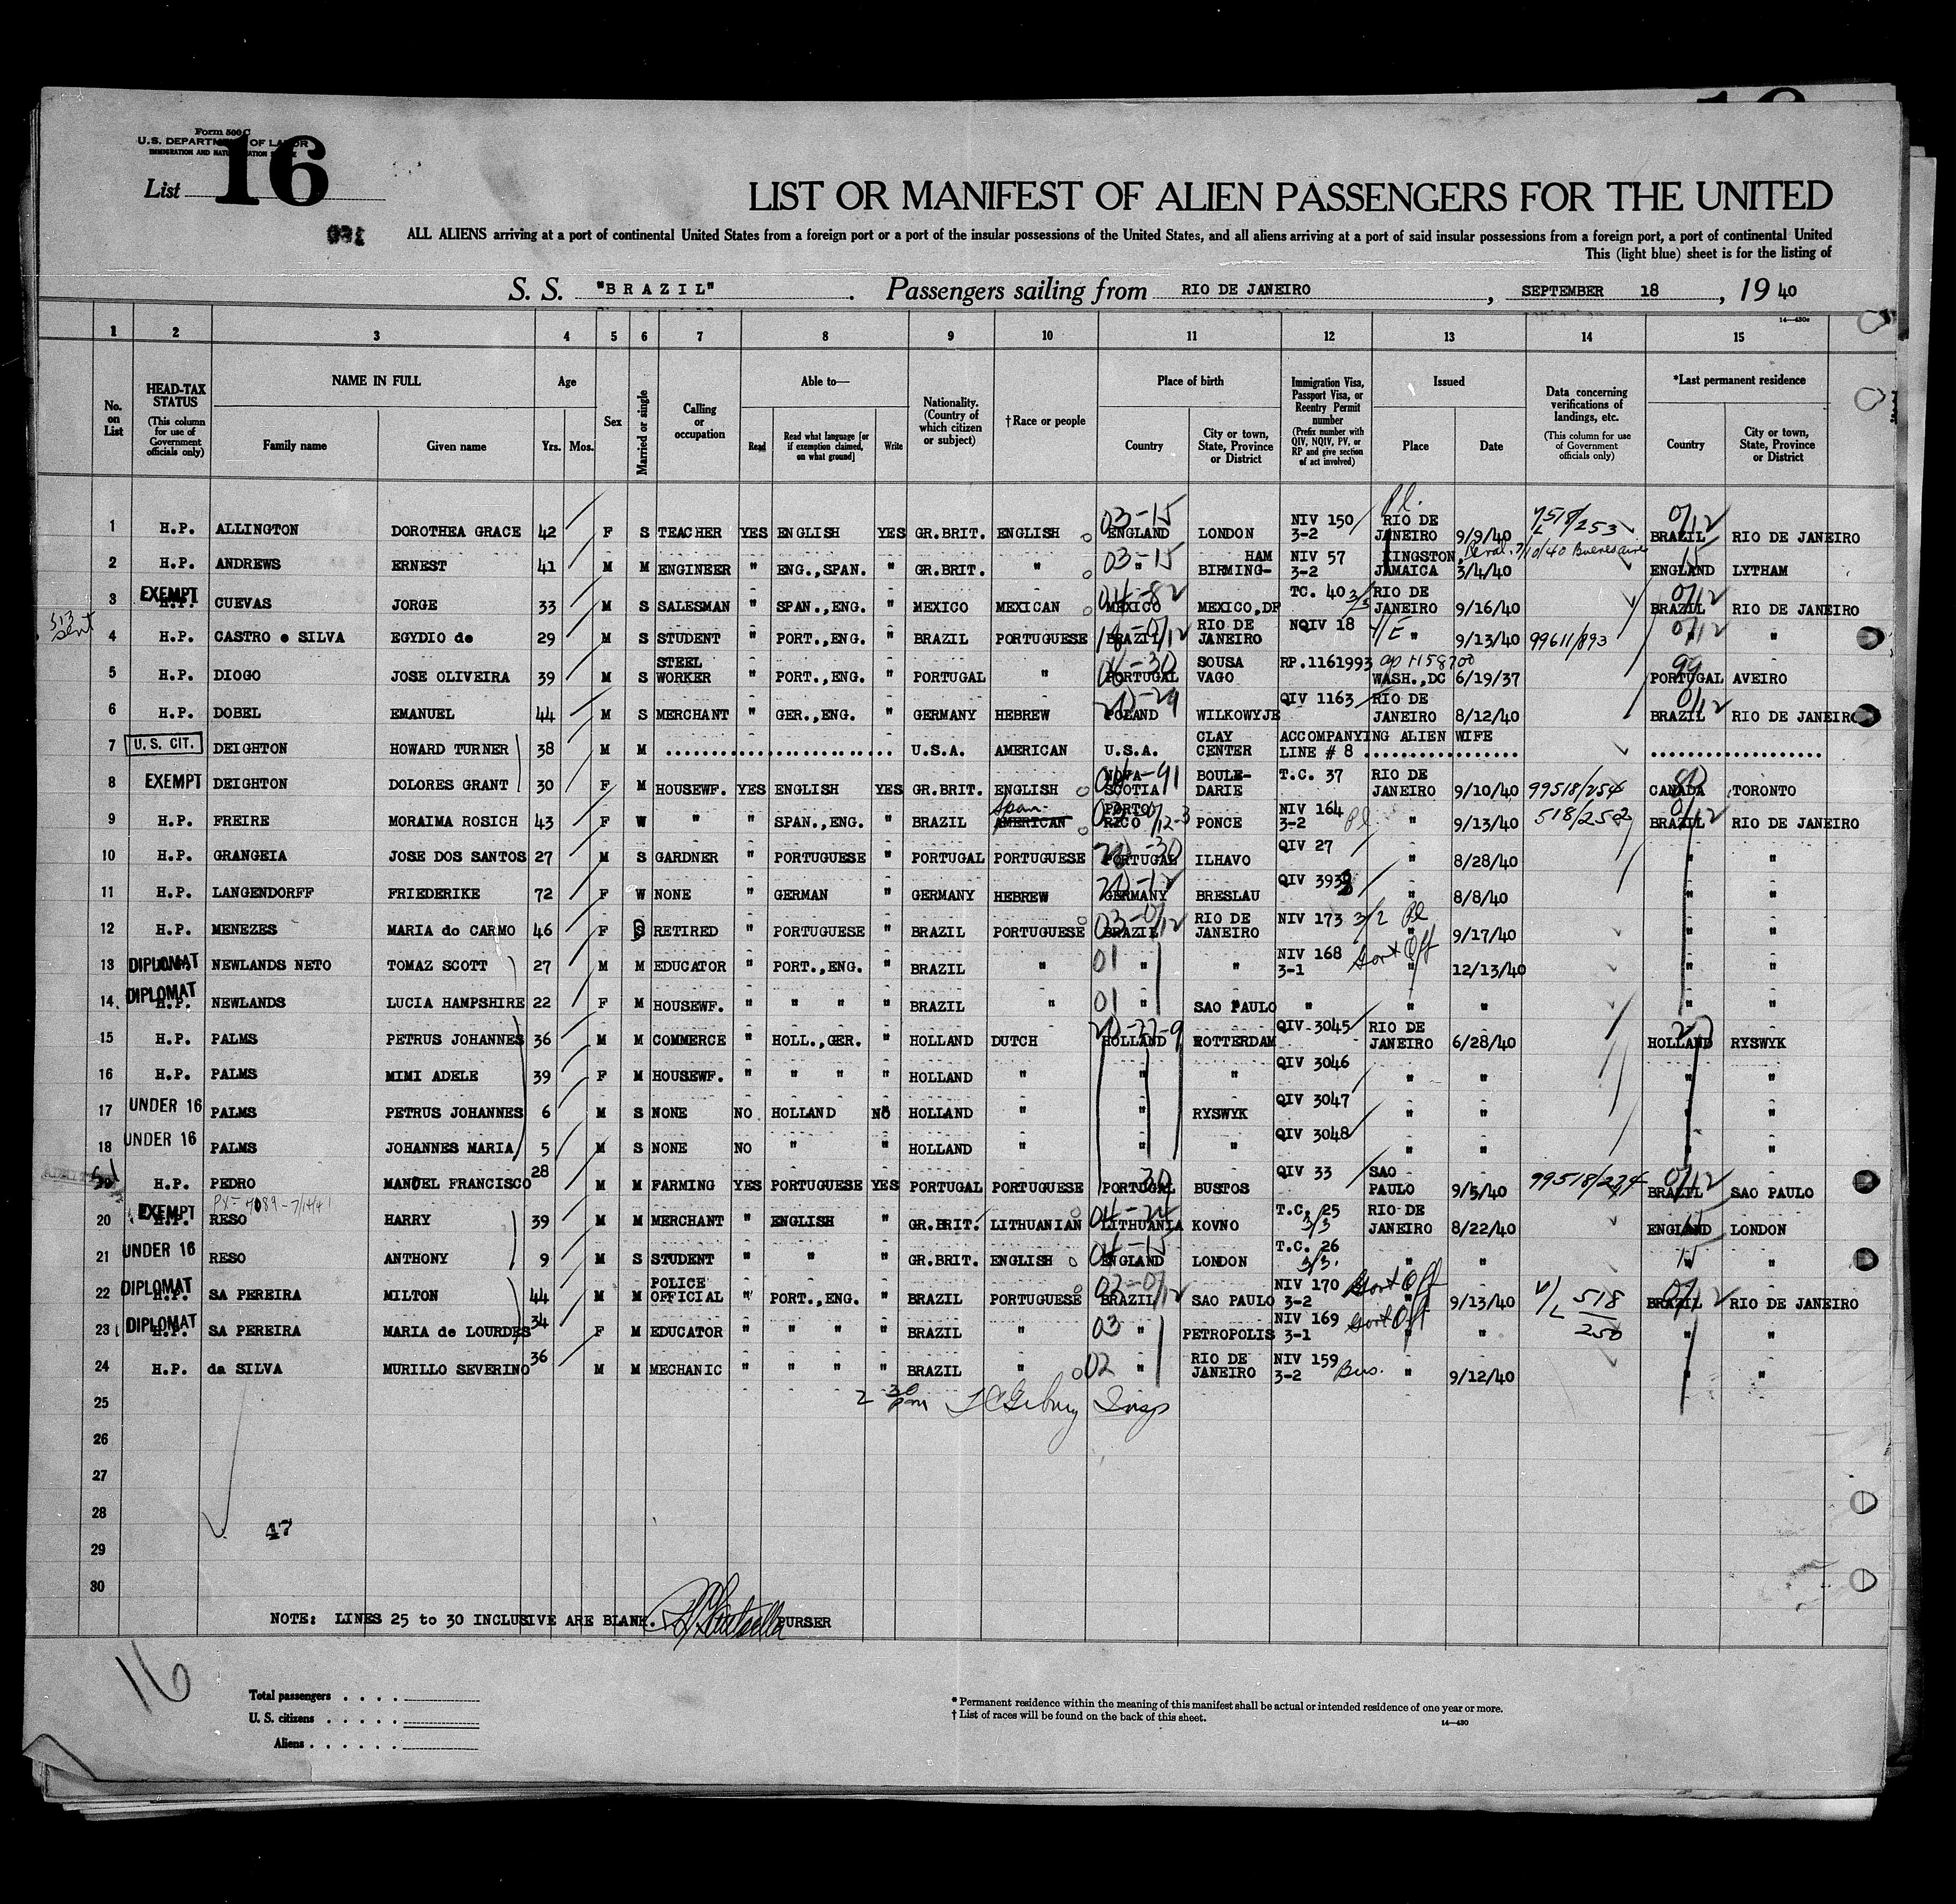 Form 500 C
U.S. DEPARTMENT OF LABOR
IMMIGRATION AND NATURALIZATION SERVICE
List 16
LIST OR MANIFEST OF ALIEN PASSENGERS FOR THE UNITED
ALL ALIENS arriving at a port of continental United States from a foreign port or a port of the insular possessions of the United States, and all aliens arriving at a port of said insular possessions from a foreign port, a port of continental United
This (light blue) sheet is for the listing of
S. S. "BRAZIL". Passengers sailing from RIO DE JANEIRO, SEPTEMBER 18, 19 40
14—430c
1 2 3 4 5 6 7 8 9 10 11 12 13 14 15
No. on List
HEAD-TAX STATUS (This column for use of Government officials only)
NAME IN FULL Family name Given name
Age Yrs. Mos.
Sex
Married or single
Calling or occupation
Able to— Read Read what language [or if exemption claimed, on what ground] Write
Nationality. (Country of which citizen or subject)
†Race or people
Place of birth Country City or town, State, Province or District
Immigration Visa, Passport Visa, or Reentry Permit number (Prefix number with QIV, NQIV, PV, or RP and give section of act involved)
Issued Place Date
Data concerning verifications of landings, etc. (This column for use of Government officials only)
*Last permanent residence Country City or town, State, Province or District
1 H.P. ALLINGTON DOROTHEA GRACE 42 F S TEACHER YES ENGLISH YES GR.BRIT. ENGLISH 03-15 ENGLAND LONDON NIV 150 3-2 RIO DE JANEIRO 9/9/40 518/253 0/12 BRAZIL RIO DE JANEIRO
2 H.P. ANDREWS ERNEST 41 M M ENGINEER " ENG.,SPAN. " GR.BRIT. " 03-15 " BIRMING-HAM NIV 57 3-2 KINGSTON, JAMAICA 3/4/40 7/10/40 Buenos Aires 15 ENGLAND LYTHAM
3 EXEMPT H.P. CUEVAS JORGE 33 M S SALESMAN " SPAN.,ENG. " MEXICO MEXICAN 04-82 MEXICO MEXICO,DF TC. 40 3/3 RIO DE JANEIRO 9/16/40 0/12 BRAZIL RIO DE JANEIRO
513 sent
4 H.P. CASTRO e SILVA EGYDIO de 29 M S STUDENT " PORT.,ENG. " BRAZIL PORTUGUESE 18-0/12 BRAZIL RIO DE JANEIRO NQIV 18 4/E " 9/13/40 99611/893 0/12 " "
5 H.P. DIOGO JOSE OLIVEIRA 39 M S STEEL WORKER " PORT.,ENG. " PORTUGAL " 04-30 PORTUGAL SOUSA VAGO RP.1161993 WASH.,DC 6/19/37 99 PORTUGAL AVEIRO
6 H.P. DOBEL EMANUEL 44 M S MERCHANT " GER.,ENG. " GERMANY HEBREW 20-29 POLAND WILKOWYJE QIV 1163 RIO DE JANEIRO 8/12/40 0/12 BRAZIL RIO DE JANEIRO
7 U.S. CIT. DEIGHTON HOWARD TURNER 38 M M U.S.A. AMERICAN U.S.A. CLAY CENTER ACCOMPANYING ALIEN WIFE LINE # 8
8 EXEMPT DEIGHTON DOLORES GRANT 30 F M HOUSEWF. YES ENGLISH YES GR.BRIT. ENGLISH 04-91 NOVA-SCOTIA BOULE-DARIE T.C. 37 RIO DE JANEIRO 9/10/40 99518/254 80 CANADA TORONTO
9 H.P. FREIRE MORAIMA ROSICH 43 F W " " SPAN.,ENG. " BRAZIL Span. AMERICAN PORTO RICO PONCE NIV 164 3-2 Pl. " 9/13/40 518/252 0/12 BRAZIL RIO DE JANEIRO
10 H.P. GRANGEIA JOSE DOS SANTOS 27 M S GARDNER " PORTUGUESE " PORTUGAL PORTUGUESE 20-30 PORTUGAL ILHAVO QIV 27 " 8/28/40 " "
11 H.P. LANGENDORFF FRIEDERIKE 72 F W NONE " GERMAN " GERMANY HEBREW 20-12 GERMANY BRESLAU QIV 3938 " 8/8/40 " "
12 H.P. MENEZES MARIA do CARMO 46 F S RETIRED " PORTUGUESE " BRAZIL PORTUGUESE 03-0/12 BRAZIL RIO DE JANEIRO NIV 173 3/2 Pl " 9/17/40 " "
13 DIPLOMAT NEWLANDS NETO TOMAZ SCOTT 27 M M EDUCATOR " PORT.,ENG. " BRAZIL " 01 " " NIV 168 3-1 Govt Off " 12/13/40 " "
14 DIPLOMAT H.P. NEWLANDS LUCIA HAMPSHIRE 22 F M HOUSEWF. " " " " BRAZIL " 01 " SAO PAULO " " " " "
15 H.P. PALMS PETRUS JOHANNES 36 M M COMMERCE " HOLL.,GER. " HOLLAND DUTCH 20-27-9 HOLLAND ROTTERDAM QIV 3045 RIO DE JANEIRO 6/28/40 27 HOLLAND RYSWYK
16 H.P. PALMS MIMI ADELE 39 F M HOUSEWF. " " " " HOLLAND " " " QIV 3046 " " " "
17 UNDER 16 PALMS PETRUS JOHANNES 6 M S NONE NO HOLLAND NO HOLLAND " " RYSWYK QIV 3047 " " " "
18 UNDER 16 PALMS JOHANNES MARIA 5 M S NONE NO " " HOLLAND " " " QIV 3048 " " " "
19 H.P. PEDRO MANUEL FRANCISCO 28 M M FARMING YES PORTUGUESE YES PORTUGAL PORTUGUESE 30 PORTUGAL BUSTOS QIV 33 SAO PAULO 9/5/40 0/12 BRAZIL SAO PAULO
20 EXEMPT H.P. RESO HARRY 39 M M MERCHANT " ENGLISH " GR.BRIT. LITHUANIAN 04-24 LITHUANIA KOVNO T.C. 25 3/3 RIO DE JANEIRO 8/22/40 15 ENGLAND LONDON
21 UNDER 16 RESO ANTHONY 9 M S STUDENT " " " GR.BRIT. ENGLISH 04-15 ENGLAND LONDON T.C. 26 3/3 " " 15 " "
22 DIPLOMAT H.P. SA PEREIRA MILTON 44 M M POLICE OFFICIAL " PORT.,ENG. " BRAZIL PORTUGUESE 02-0/12 BRAZIL SAO PAULO NIV 170 3-2 Govt Off " 9/13/40 V/L 518/250 0/12 BRAZIL RIO DE JANEIRO
23 DIPLOMAT H.P. SA PEREIRA MARIA de LOURDES 34 F M EDUCATOR " " " " BRAZIL " 03 " PETROPOLIS NIV 169 3-1 Govt Off " " " "
24 H.P. da SILVA MURILLO SEVERINO 36 M M MECHANIC " " " " BRAZIL " 02 " RIO DE JANEIRO NIV 159 3-2 Bus. " 9/12/40 " "
25 2 30 pm Insp
26
27
28
47
29
30
NOTE: LINES 25 to 30 INCLUSIVE ARE BLANK. PURSER
16
Total passengers
U. S. citizens
Aliens
* Permanent residence within the meaning of this manifest shall be actual or intended residence of one year or more.
† List of races will be found on the back of this sheet.
14—430